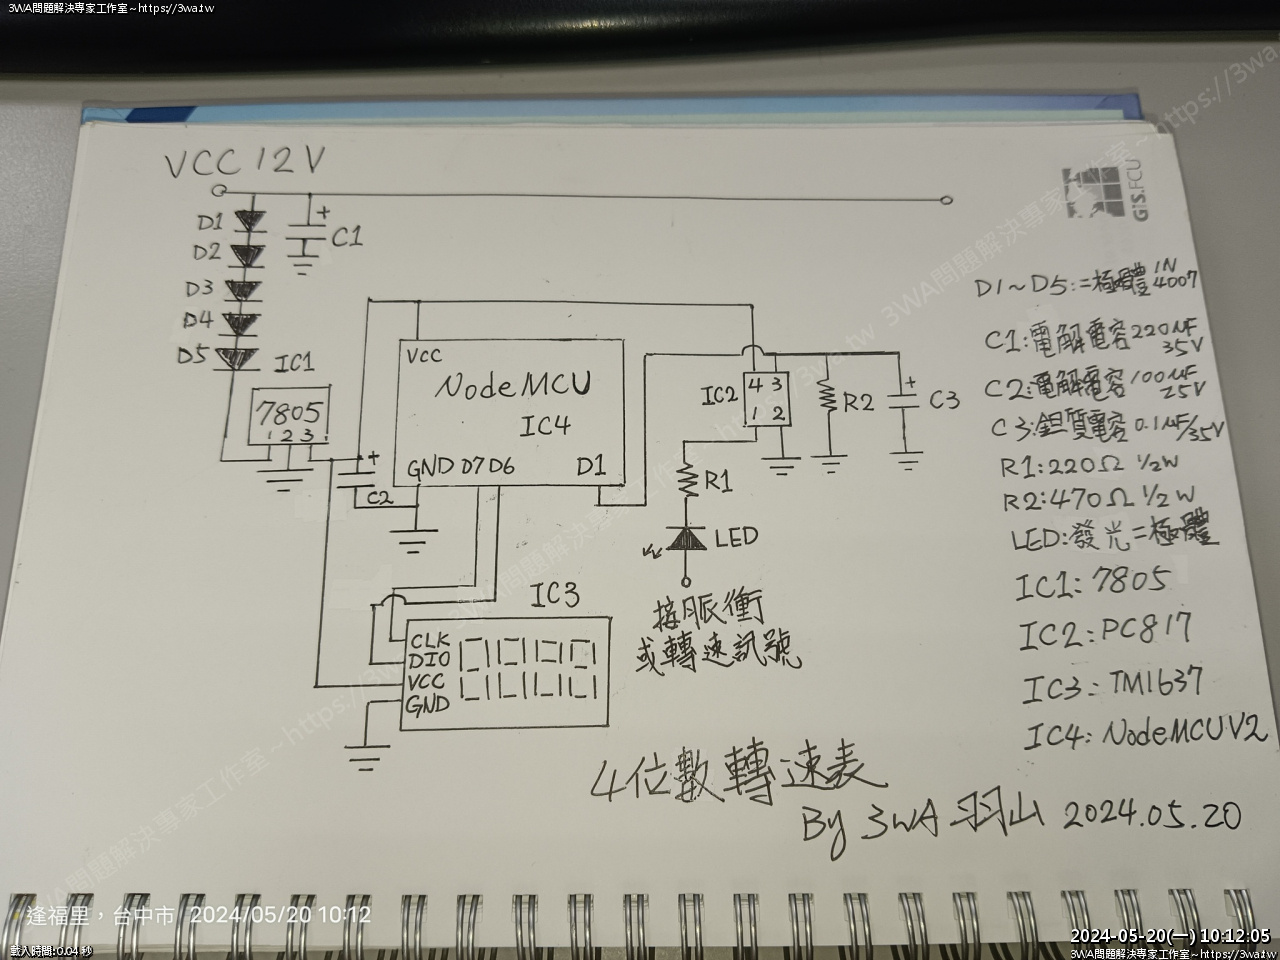 3WA問題解決專家工作室~https://3wa.tw
VCC 12V
D1
D2
D3
D4
D5
C1
IC1
7805
1 2 3
C2
VCC
NodeMCU
IC4
GND D7 D6 D1
IC2
4 3
1 2
R1
R2
C3
LED
接脈衝
或轉速訊號
IC3
CLK
DIO
VCC
GND
GIS.FCU
D1~D5:二極體 1N4007
C1:電解電容 220uF 35V
C2:電解電容 100uF 25V
C3:鉭質電容 0.1uF/35V
R1:220Ω 1/2W
R2:470Ω 1/2W
LED:發光二極體
IC1:7805
IC2:PC817
IC3:TM1637
IC4:NodeMCUV2
4位數轉速表
By 3WA 羽山 2024.05.20
逢福里,台中市 2024/05/20 10:12
載入時間:0.04 秒
2024-05-20(一) 10:12:05
3WA問題解決專家工作室~https://3wa.tw